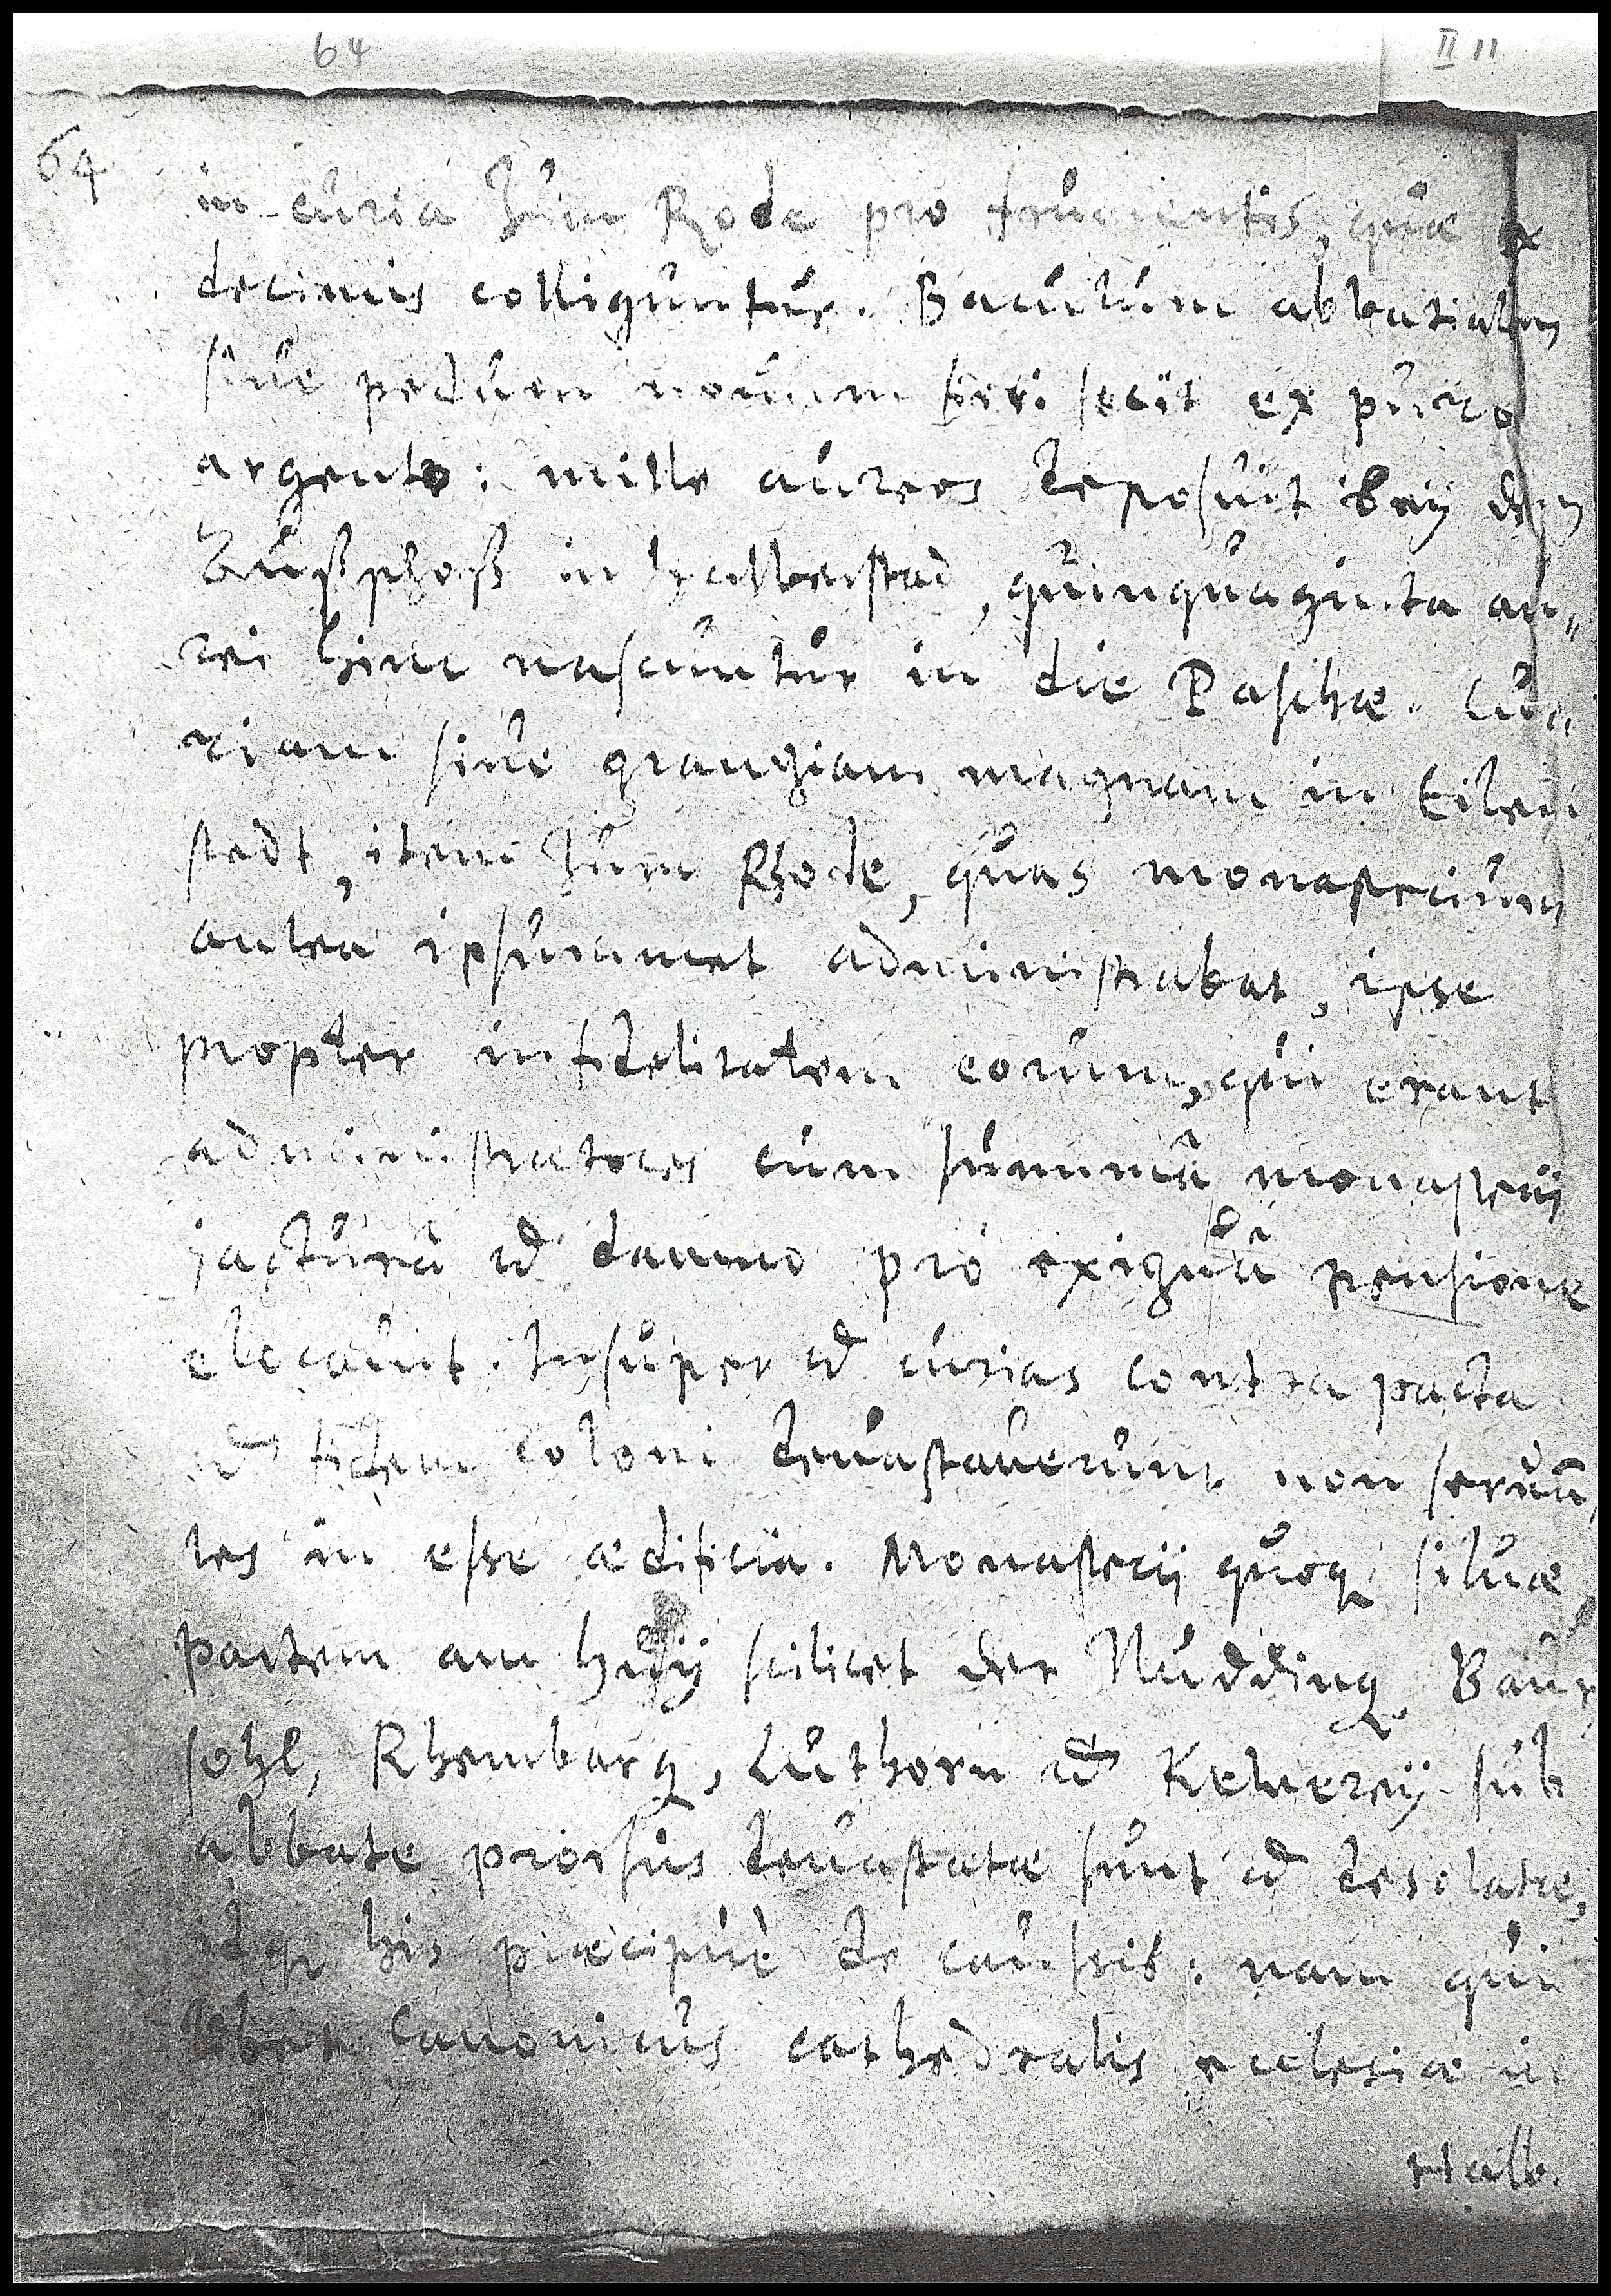 64
II 11
64
in curia zum Rode pro frumentis, quæ ex
decimis colliguntur. Baculum abbatialem
siue pedum nouum fieri fecit ex puro
argento: mille aureos deposuit beÿ dem
in Halberstad, quinquaginta au„
rei hinc nascuntur in die Paschæ. Cu„
riam siue grangiam magnam in Eilen
stedt, item zum Rhode, quas monasterium
antea ipsummet administrabat, ipse
propter infidelitatem eorum, qui erant
administratores cum summâ monasterij
jacturâ et damno pro exiguâ pensione
elocauit. Insuper et curias contra pacta
et fidem coloni deuastauerunt non seruā„
tes in esse ædificia. Monasterij quoq silvæ
partem am Huÿ scilicet der Nudding, Baur
sohl, Rhemberg, Luthorn et Kelwereÿ sub
abbate prorsus deuastatæ sunt et desolatæ,
idq his præcipuè de caussis: nam qui
libet canonicus cathedralis ecclesiæ in
Halb.